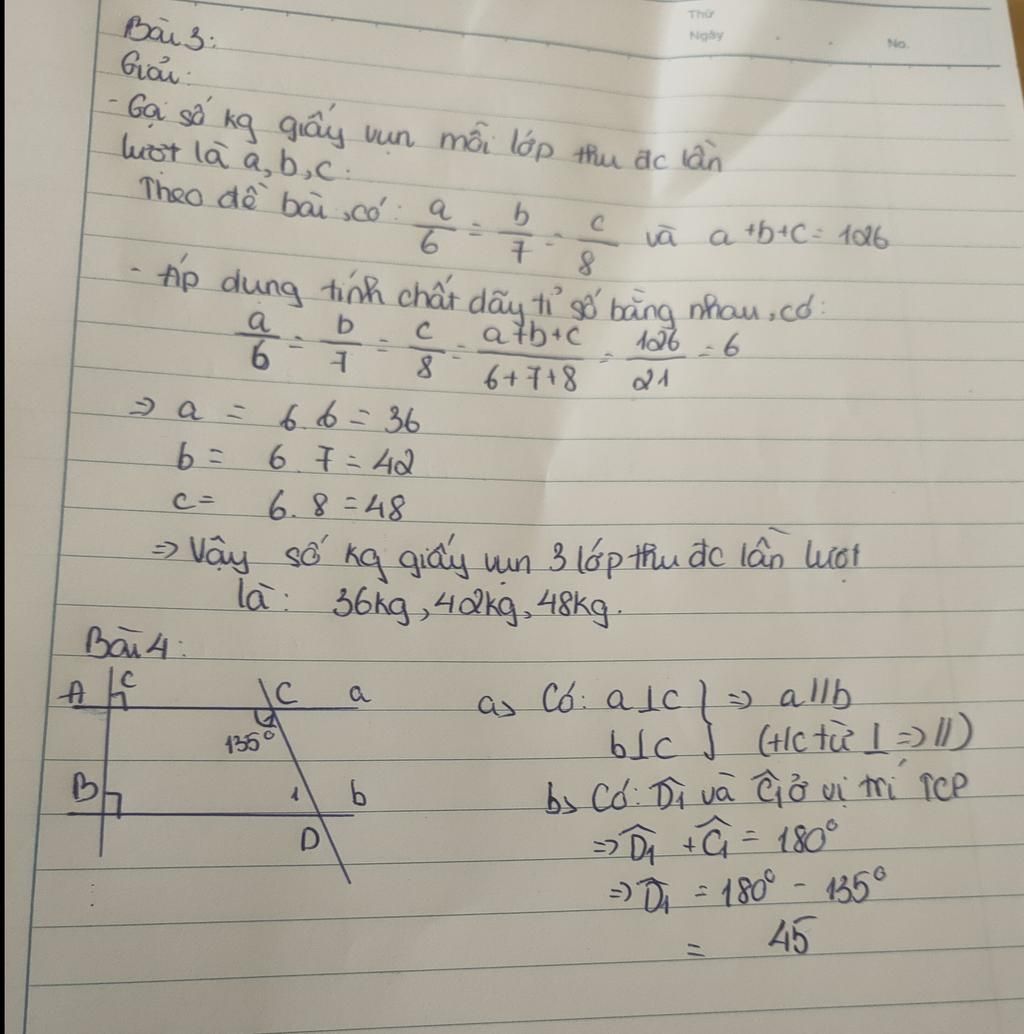 Thứ
Ngày . . No.
Bài 3:
Giải:
- Gọi số kg giấy vụn mỗi lớp thu đc lần
lượt là a, b, c.
Theo đề bài, có: a/6 = b/7 = c/8 và a+b+c = 126
- Áp dụng tính chất dãy tỉ số bằng nhau, có:
a/6 = b/7 = c/8 = (a+b+c)/(6+7+8) = 126/21 = 6
=> a = 6.6 = 36
b = 6.7 = 42
c = 6.8 = 48
=> Vậy số kg giấy vụn 3 lớp thu đc lần lượt
là: 36kg, 42kg, 48kg.
Bài 4:
A c C a
135°
B 1 b
D
a> Có: a⊥c } => a//b
b⊥c } (t/c từ ⊥ => //)
b> Có: D̂1 và Ĉ1 ở vị trí TCP
=> D̂1 + Ĉ1 = 180°
=> D̂1 = 180° - 135°
= 45